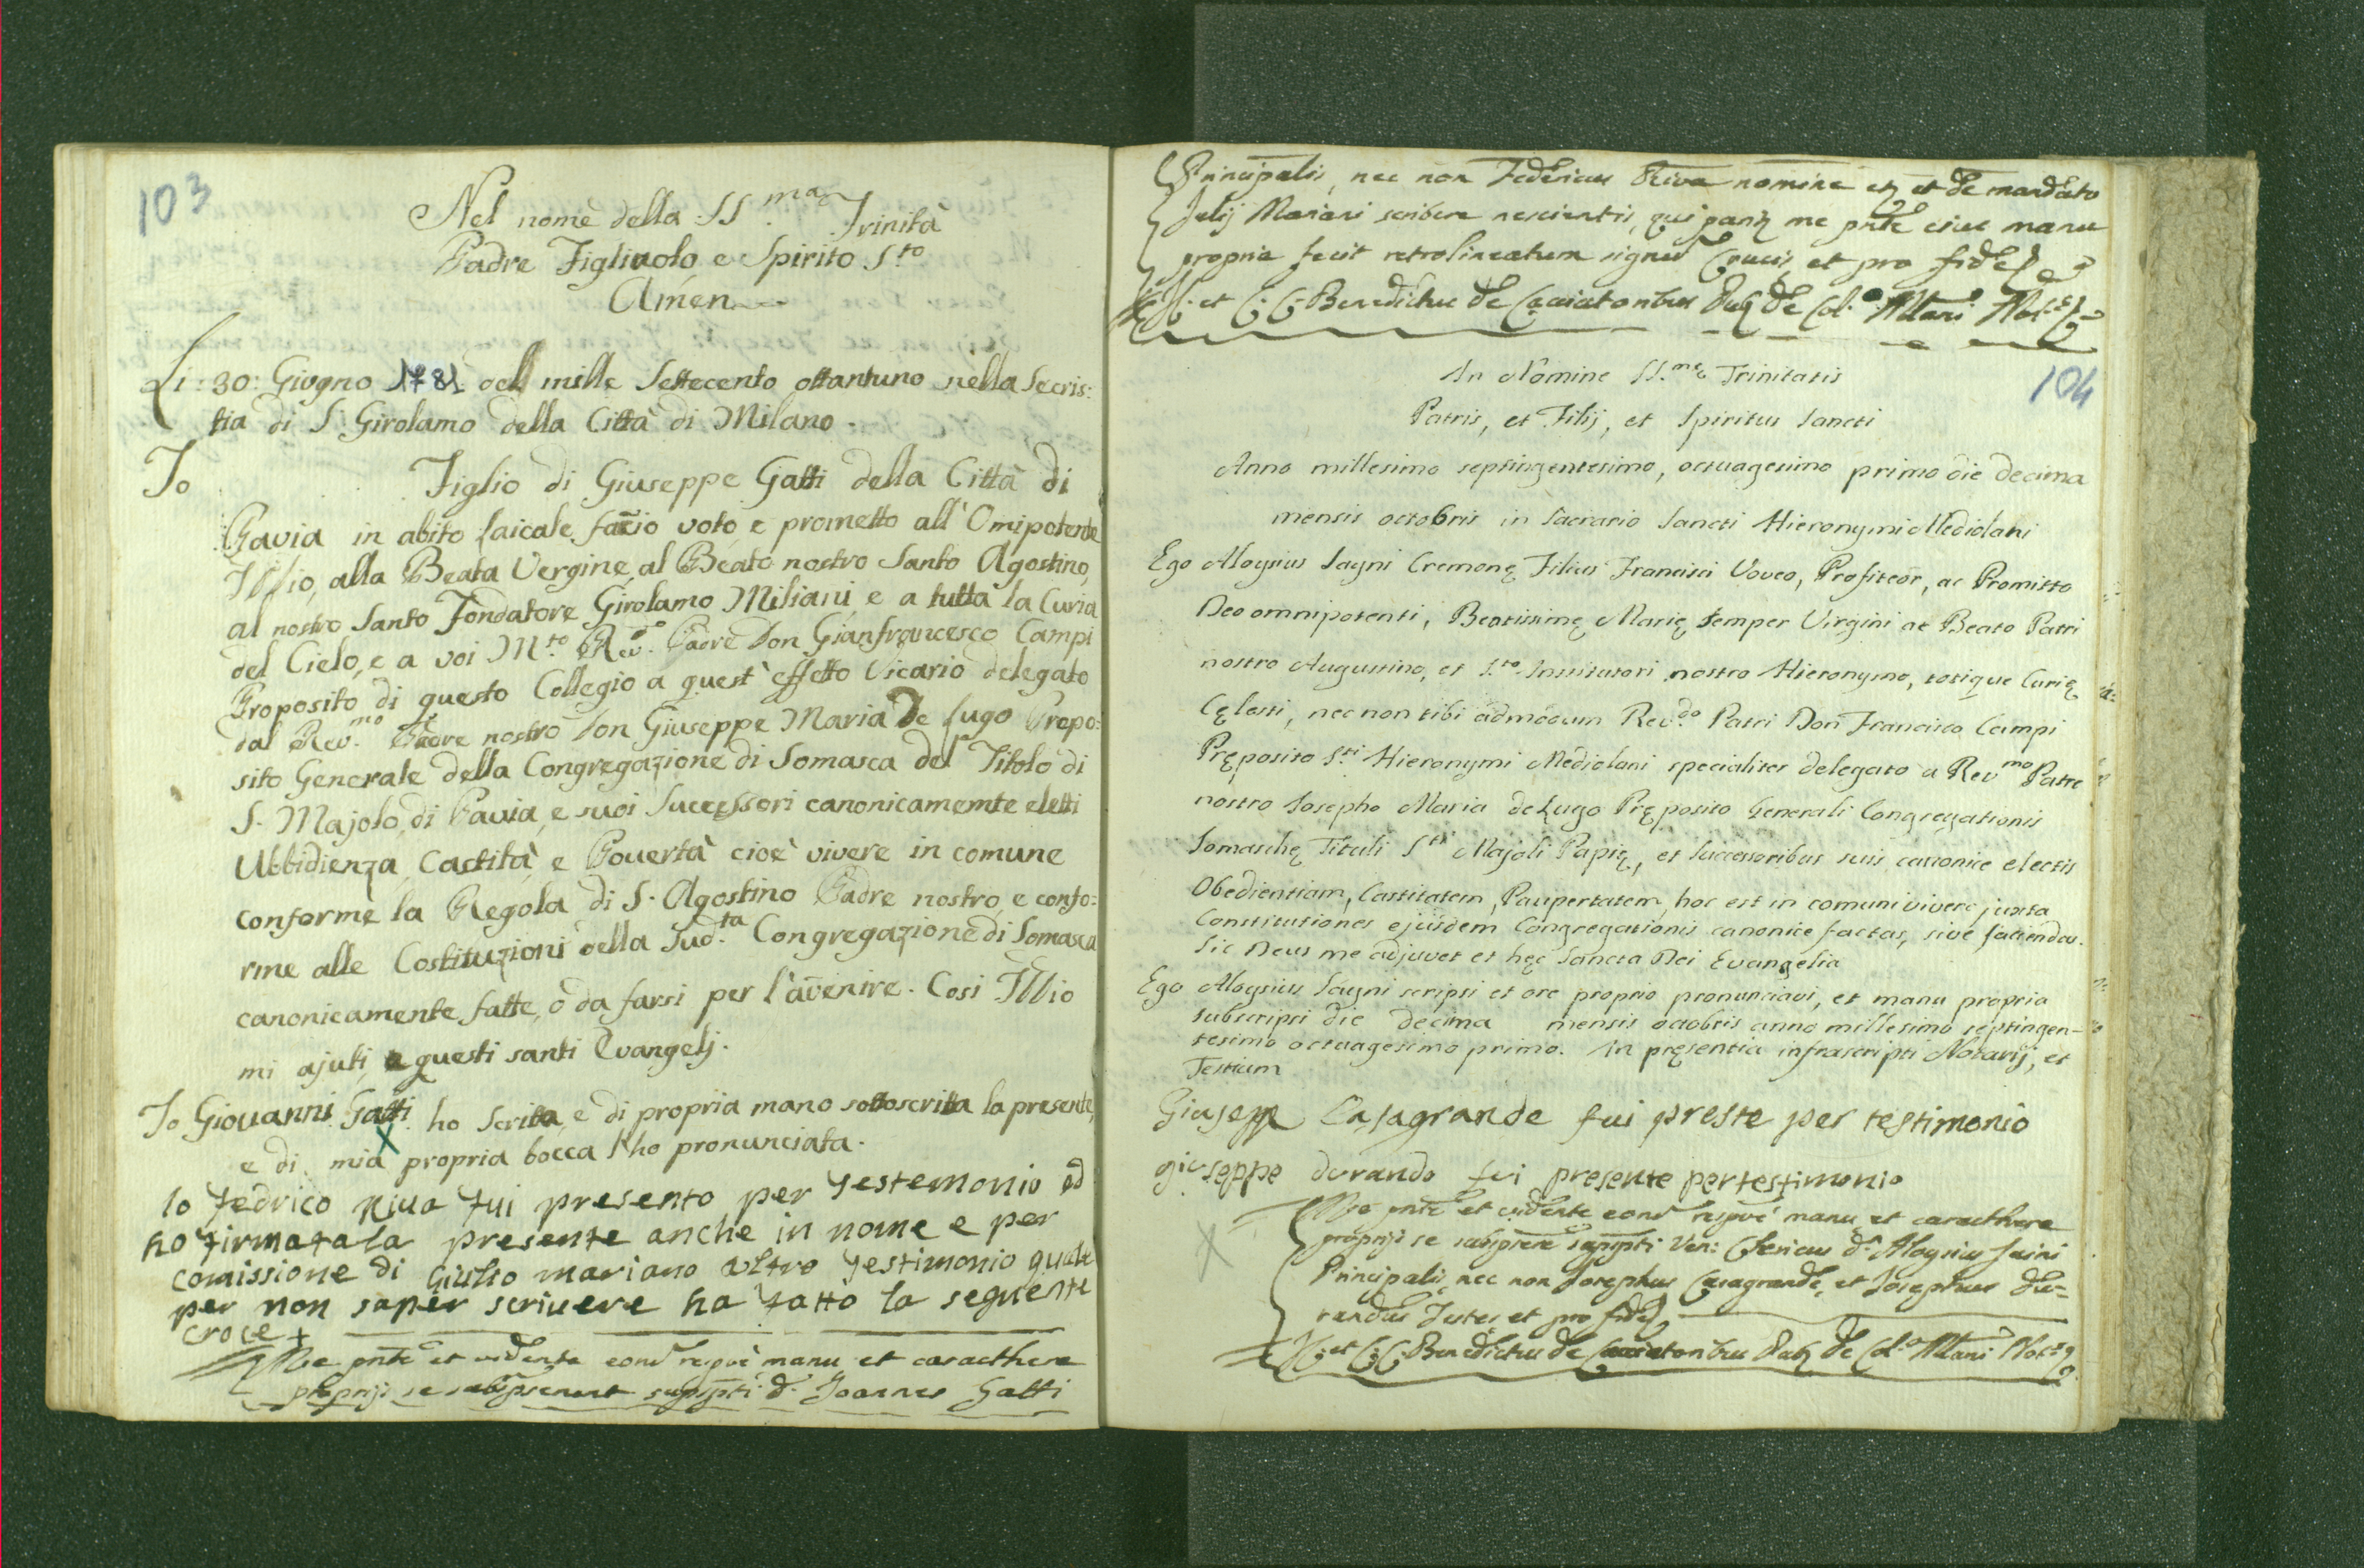 103
Nel nome della SS.ma Trinità
Padre Figliuolo e Spirito S.to
Amen
Li: 30: Giugno 1781 del mille Settecento ottantuno nella Secris:
tia di S. Girolamo della Città di Milano.
Io Figlio di Giuseppe Gatti della Città di
Pavia in abito laicale, faccio voto, e prometto all'Omipotente
Iddio, alla Beata Vergine, al Beato nostro Santo Agostino,
al nostro Santo Fondatore Girolamo Miliani, e a tutta la Curia
del Cielo, e a voi M.to Rev.o Padre Don Gianfrancesco Campi
Proposito di questo Collegio a quest'effetto Vicario delegato
dal Rev.mo Padre nostro Don Giuseppe Maria De Lugo Prepo:
sito Generale della Congregazione di Somasca del Titolo di
S. Majolo, di Pavia, e suoi Successori canonicamemte eletti
Ubbidienza, Castità, e Povertà cioè vivere in comune
conforme la Regola di S. Agostino Padre nostro, e confo:
rme alle Costituzioni della Sud.ta Congregazione di Somasca
canonicamente fatte, o da farsi per l'avenire. Cosi Iddio
mi ajuti, e questi santi Evangelj.
Io Giovanni Gatti ho scritta, e di propria mano sottoscritta la presente,
X
e di mia propria bocca l'ho pronunciata.
Io Fedrico Riva fui presento per testemonio ed
ho firmata la presente anche in nome e per
comissione di Giulio mariano altro testimonio quale
per non saper scrivere ha fatto la seguente
croce +
Me pnte et vidente eond respve manu et caracthere
proprijs se subpserunt supspti d. Joannes Gatti
Principalis, nec non Federicus Riva nomine et de mandato
Julij Mariani scribere nescientis, qui me pnte eius manu
propria fecit retrolineatum signu Crucis, et pro fide
et Benedictus de Caccia Not.s
104
In Nomine SS.me Trinitatis
Patris, et Filij, et Spiritus Sancti
Anno millesimo septingentesimo, octuagesimo primo die decima
mensis octobris in Sacrario Sancti Hieronymi Mediolani
Ego Aloysius Sayni Cremonę Filius Francisci Voveo, Profiteor, ac Promitto
Deo omnipotenti, Beatissimę Marię semper Virgini ac Beato Patri
nostro Augustino, et S.to Institutori nostro Hieronymo, totique Curię
Cęlesti, nec non tibi admodum Rev.do Patri Don Francisco Campi
Pręposito S.ti Hieronymi Mediolani specialiter delegato a Rev.mo Patre
nostro Josepho Maria de Lugo Pręposito Generali Congregationis
Somaschę Tituli S.ti Majoli Papię, et Successoribus suis canonice electis
Obedientiam, Castitatem, Paupertatem, hoc est in comuni vivere juxta
Constitutiones ejusdem Congregationis canonice factas, sive faciendas.
Sic Deus me adjuvet et hęc Sancta Dei Evangelia
Ego Aloysius Sayni scripsi et ore proprio pronunciavi, et manu propria
subscripsi die decima mensis octobris anno millesimo septingen-
tesimo octuagesimo primo. In pręsentia infrascripti Notarij, et
Testium
Giuseppe Casagrande fui preste per testimonio
giuseppe durando fui presente per testimonio
X
Me pnte et vidente eond respve manu et caracthere
proprijs se subpsere supspti Ven: Clericus d. Aloysius Saini
Principalis, nec non Josephus Casagrande, et Josephus Du=
randus Testes et pro fide
et Benedictus de Not.s